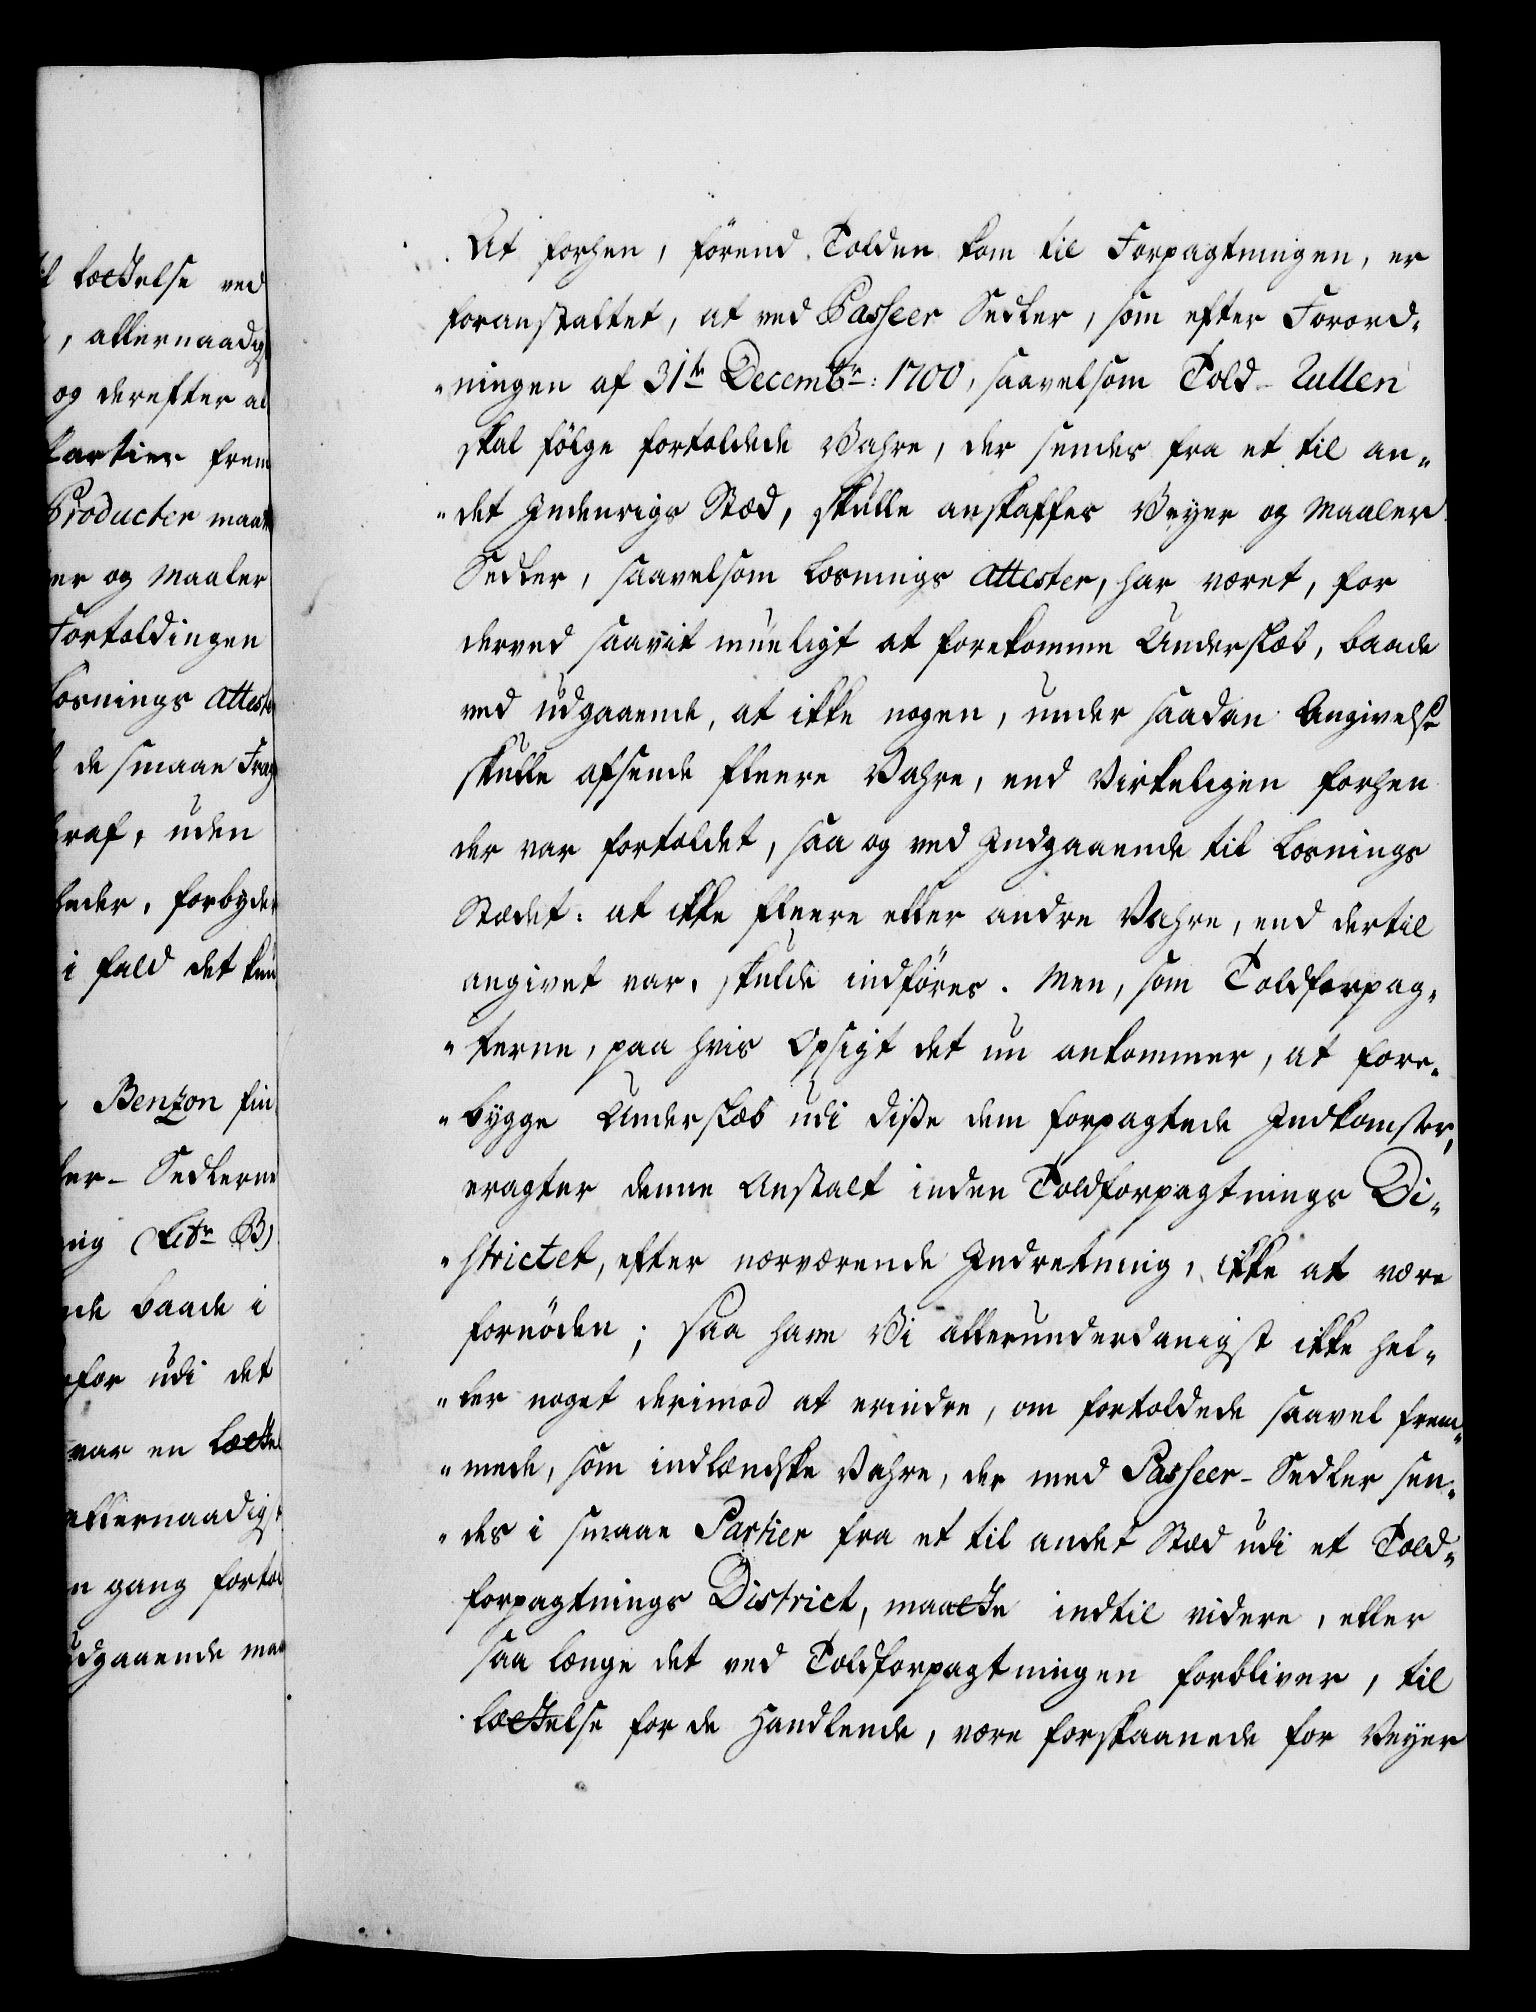 t lættelse ved
, allernaadigst
og derefter al
Partier frem
Producter maatte
er og Maaler
Fortoldingen
Losnings Atteste
de smaae Frag
kraf, uden
heder, forbyder
i fald det kun
Benzon fin
ler- Sedlerne
nig (Litr B)
de baade i
for udi det
var en lættel
allernaadigst
n gang fortol
udgaaende maa
At forhen, förend Tolden kom til Forpagtningen, er
foranstaltet, at ved Passeer Sedler, som efter Forord-
ningen af 31te Decembr: 1700, saavelsom Told-Rullen
skal fölge fortoldede Vahre, der sendes fra et til an-
det Indenrigs Stæd, skulle anskaffes Veyer og Maaler
Sedler, saavelsom Losnings Attester, har været, for
derved saavit mueligt at forekomme Underslæb, baade
ved udgaaende, at ikke nogen, under saadan Angivelse
skulle afsende fleere Vahre, end Virkeligen forhen
der var fortoldet, saa og ved Indgaaende til Losnings
Stædet: at ikke fleere eller andre Vahre, end dertil
angivet var, skulde indföres. Men, som Toldforpag-
terne, paa hvis Opsigt det nu ankommer, at fore-
bygge Underslæb udi disse dem forpagtede Indkomster,
eragter denne Anstalt inden Toldforpagtnings Di-
strictet, efter nærværende Indretning, ikke at være
fornöden; saa have Vi allerunderdanigst ikke hel-
ler noget derimod at erindre, om fortoldede saavel frem-
mede, som indlændske Vahre, der med Passeer-Sedler sen-
des i smaae Partier fra et til andet Stæd udi et Told-
forpagtnings District, maatte indtil videre, eller
saa længe det ved Toldforpagtningen forbliver, til
lættelse for de Handlende, være forskaanede for Veyer